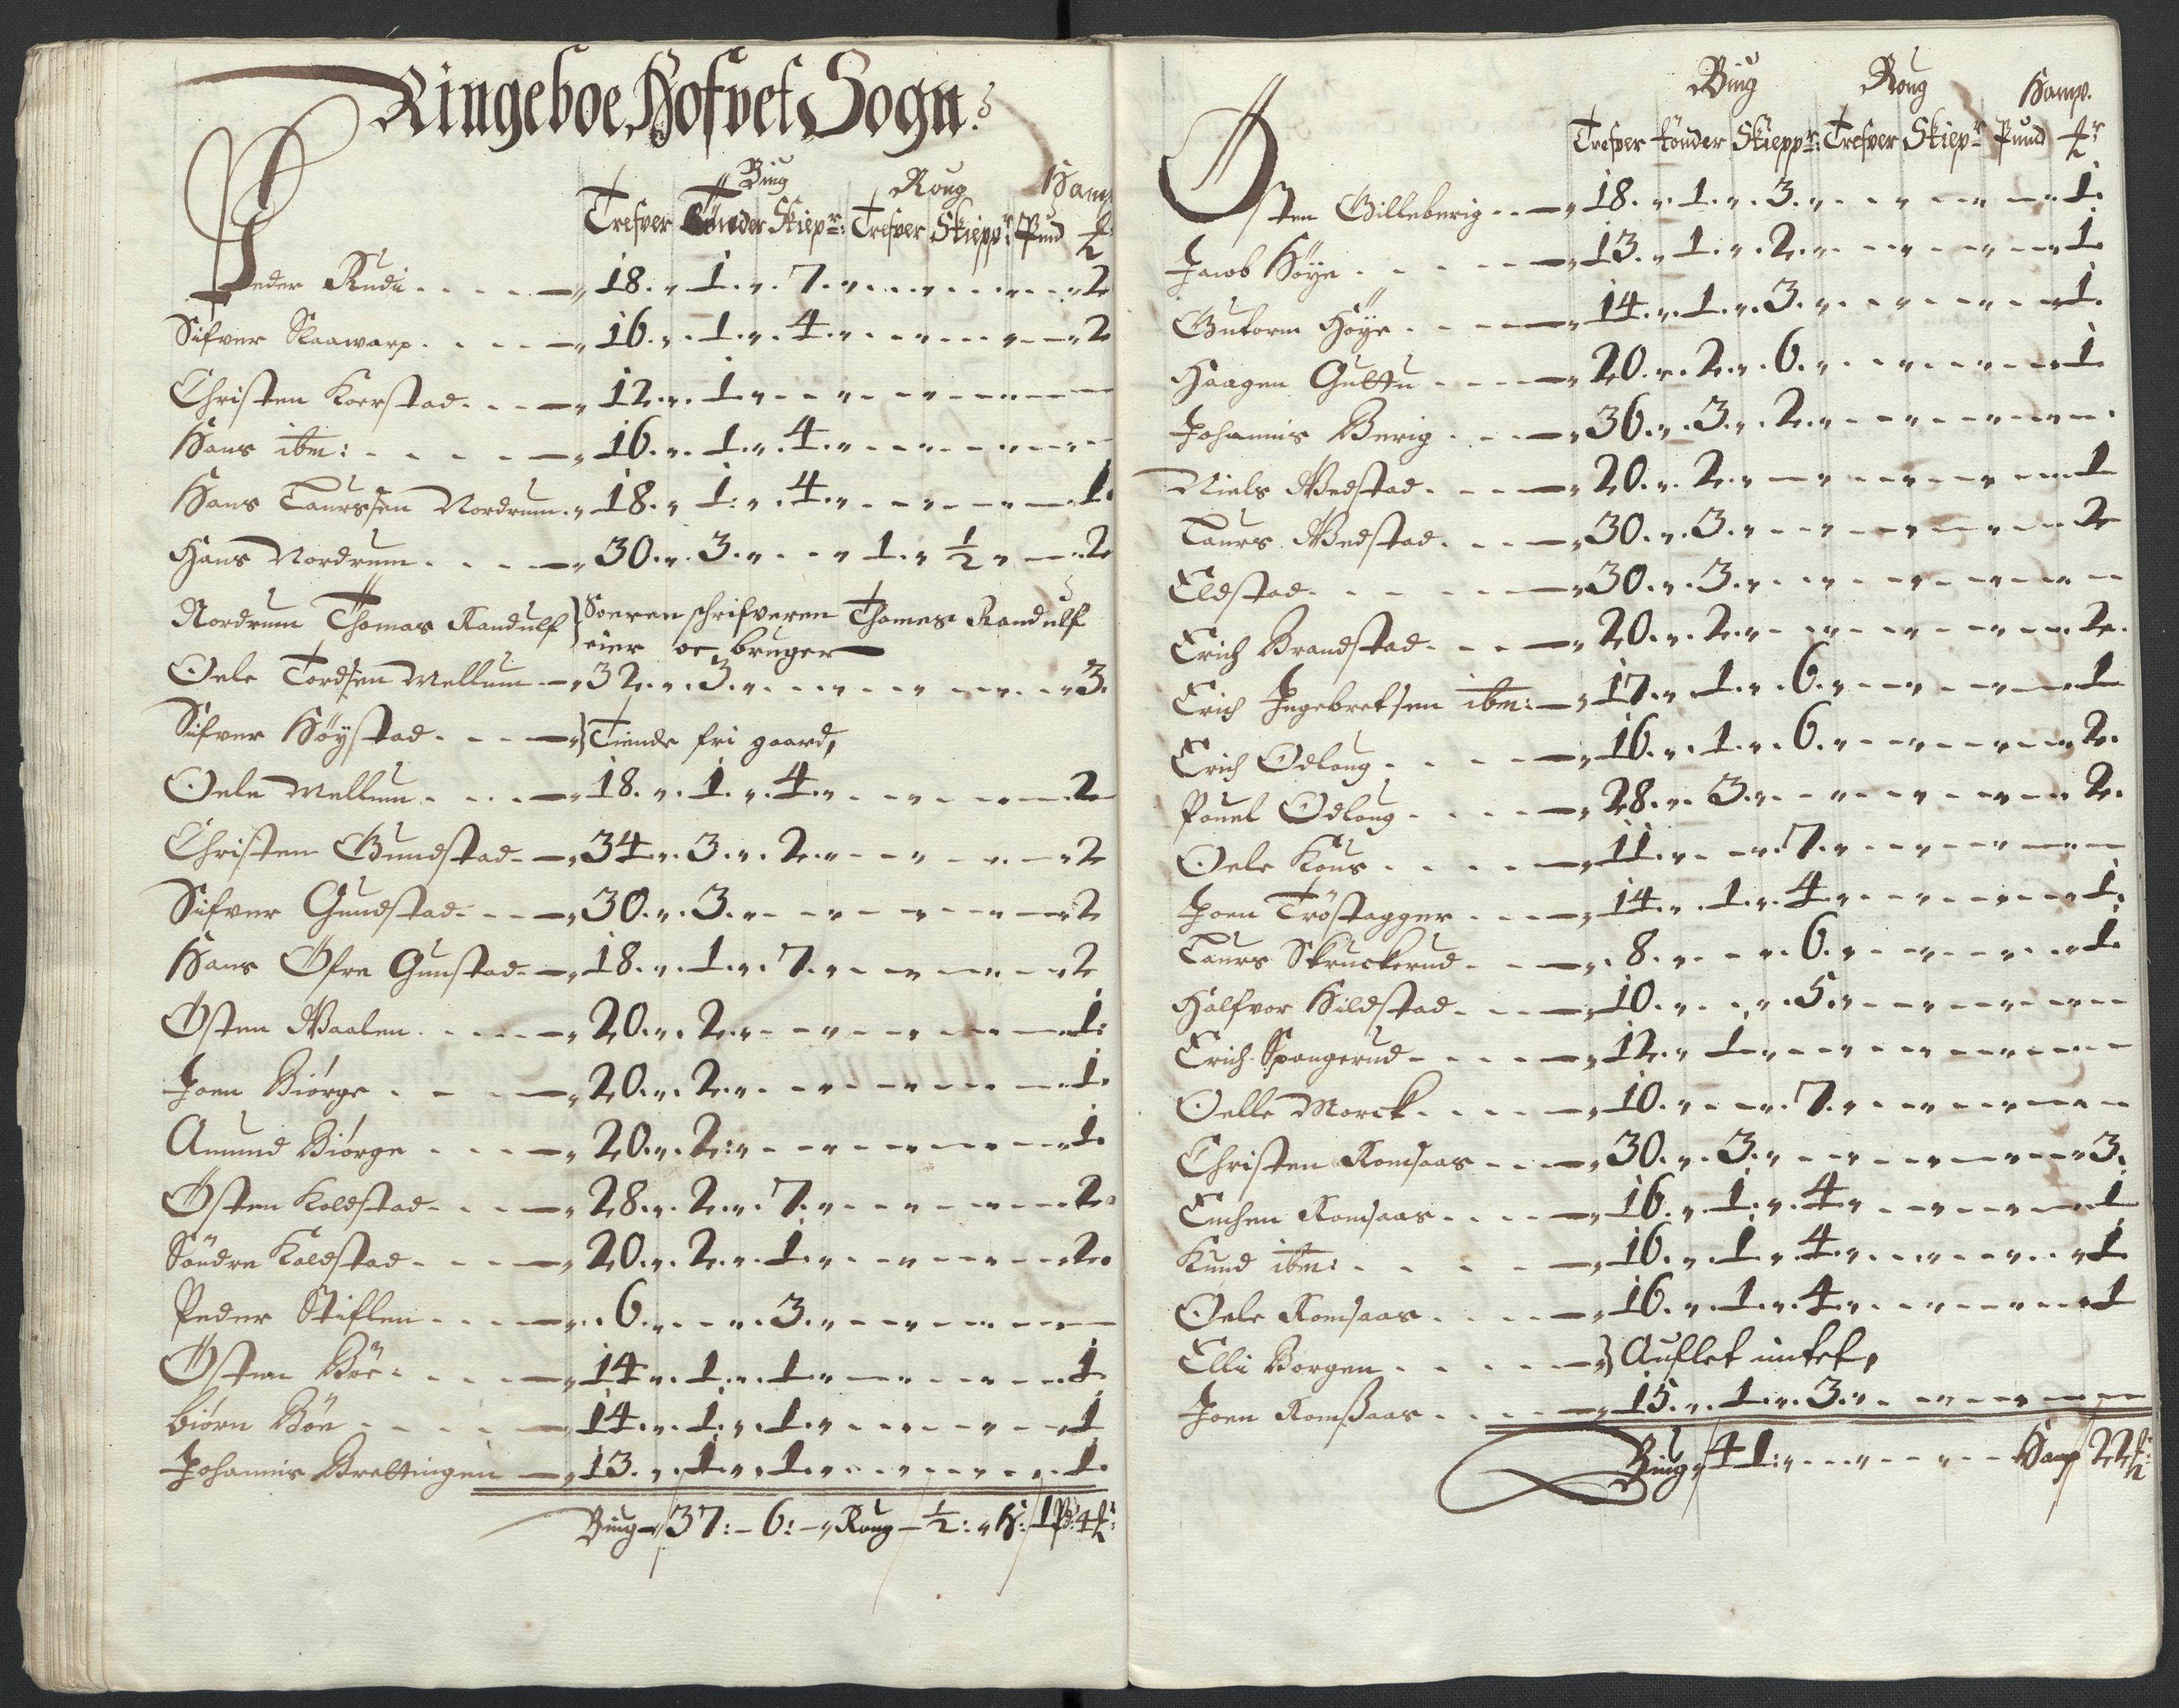 Ringeboe Hofvet Sogn:
Biug Roug Hamp
Trefver Tönder Skiepr: Trefver Skieppr: Pund
Peder Rudi - - - 18. 1. 7. - - - 2
Sifver Skaawarp - - - 16. 1. 4. - - - 2
Christen Koerstad - - - 12. 1. - - -
Hans ibm: - - - 16. 1. 4. - - -
Hans Laurssen Nordrum 18. 1: 4. - - - 1
Hans Nordrum - - - 30. 3. - - 1. ½ - 2
Nordrum Thomas Randulf } Soeren schrifveren Thomes Randulf
eier oc bruger
Oele Tordsen Mellum - 32. 3. - - - 3.
Sifver Höystad - - - } Tiende fri gaard,
Oele Mellum - - - 18. 1. 4. - - - 2
Christen Gundstad - - 34. 3. 2. - - - 2
Sifver Gundstad - - - 30. 3. - - - 2
Hans Öfre Gunstad - 18. 1. 7. - - - 2
Östen Waalen - - - 20. 2. - - - 1:
Joen Biörge - - - 20. 2. - - - 1.
Amund Biörge - - - 20. 2: - - - 1.
Östen Koldstad - - - 28. 2. 7. - - - 2.
Söndre Koldstad - - - 20. 2. 1. - - - 2.
Peder Stiflen - - - 6. - - 3. - - -
Östen Böe - - - 14. 1. 1. - - - 1
Biörn Böe - - - 14. 1. 1. - - - 1
Johannis Brettingen - 13. 1. 1. - - - 1.
Biug 37: - 6: - Roug - ½: H: 1 Pd: 4
Biug Roug Hamp.
Trefver tönder Skieppr: Trefver Skiepr Pund
Östen Gilleberig - - 18. 1. 3. - - - 1.
Jacob Höye - - - 13. 1. 2. - - - 1.
Gutorm Höye - - - 14. 1. 3. - - - 1.
Haagen Guttu - - - 20. 2. 6. - - - 1
Johannis Berig - - - 36. 3. 2. - - -
Niels Wedstad - - - 20. 2. - - - 1
Laurs Wedstad - - - 30. 3. - - - 2
Eldstad - - - 30. 3. - - -
Erich Brandstad - - - 20. 2. - - - 2.
Erich Ingebretsen ibm: - 17. 1. 6. - - - 1
Erich Odloug - - - 16. 1. 6. - - - 2.
Pouel Odloug - - - 28. 3. - - - 2.
Oele Kous - - - 11. - - 7. - - -
Joen Tröstagger - - - 14. 1. 4. - - - 1.
Laurs Skruckerud - - - 8. - - 6. - - - 1
Halfvor Hildstad - - - 10. - - 5. - - -
Erich Spangerud - - - 12. 1. - - -
Oelle Morck - - - 10. - - 7. - - -
Christen Romsaas - - - 30. 3. - - - 3.
Enchen Romsaas - - - 16. 1. 4. - - - 1
Knud ibm: - - - 16. 1. 4. - - - 1
Oele Romsaas - - - 16. 1. 4. - - - 1
Elli Borgen - - - } Auflet intet,
Joen Romssaas - - - 15. 1. 3. - - -
Biug 41: - - - Hamp 22